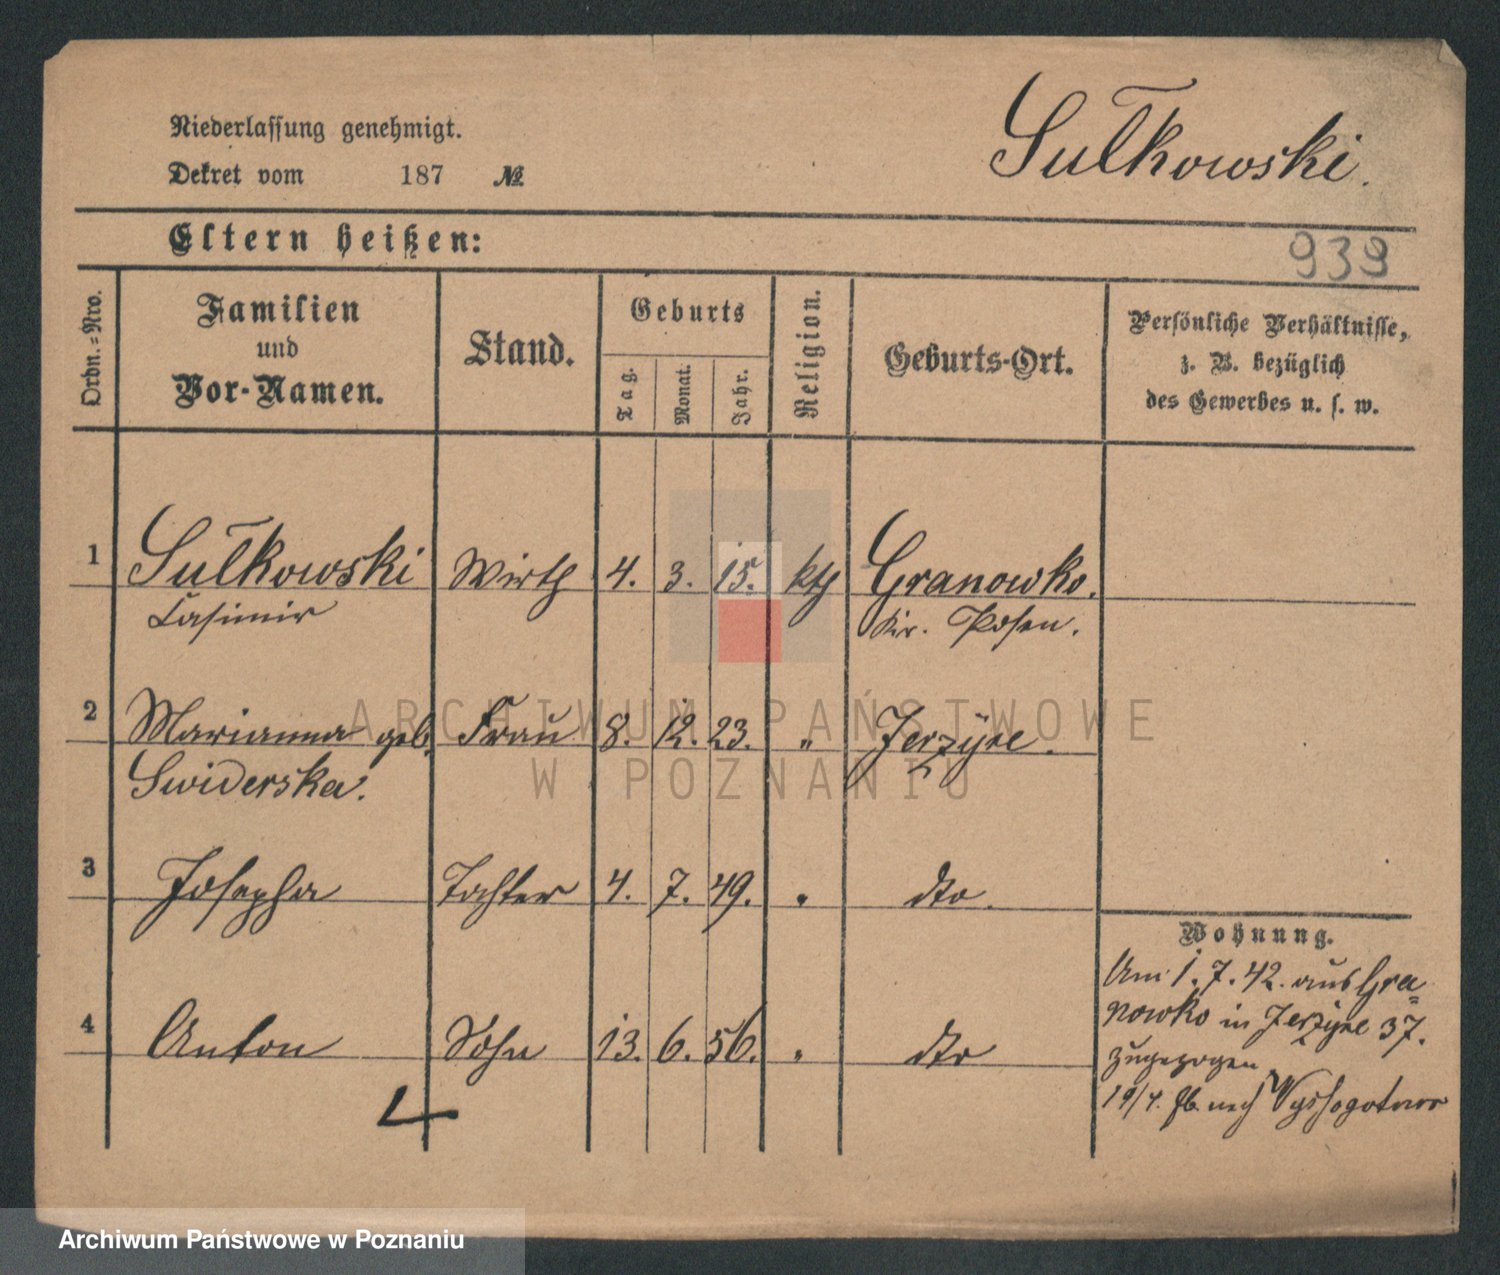 Niederlassung genehmigt.
Dekret vom 187 №
Sułkowski.
Eltern heißen:
939
Ordn.-Nro.
Familien
und
Vor-Namen.
Stand.
Geburts
Tag.
Monat.
Jahr.
Religion.
Geburts-Ort.
Persönliche Verhältnisse,
z. B. bezüglich
des Gewerbes u. s. w.
1 Sułkowski Wirth 4. 3. 15. kth Granowko.
Casimir Kr. Posen.
2 Marianna geb. Frau 8. 12. 23. " Jerzyce.
Swiderska.
3 Josepha Tochter 4. 7. 49. " dto.
4 Anton Sohn 13. 6. 56. " dto
Wohnung.
Am 1. 7. 42. aus Gra=
nowko in Jerzyce 37.
zugezogen
19/4. nach
4
ARCHIWUM PAŃSTWOWE
W POZNANIU
Archiwum Państwowe w Poznaniu